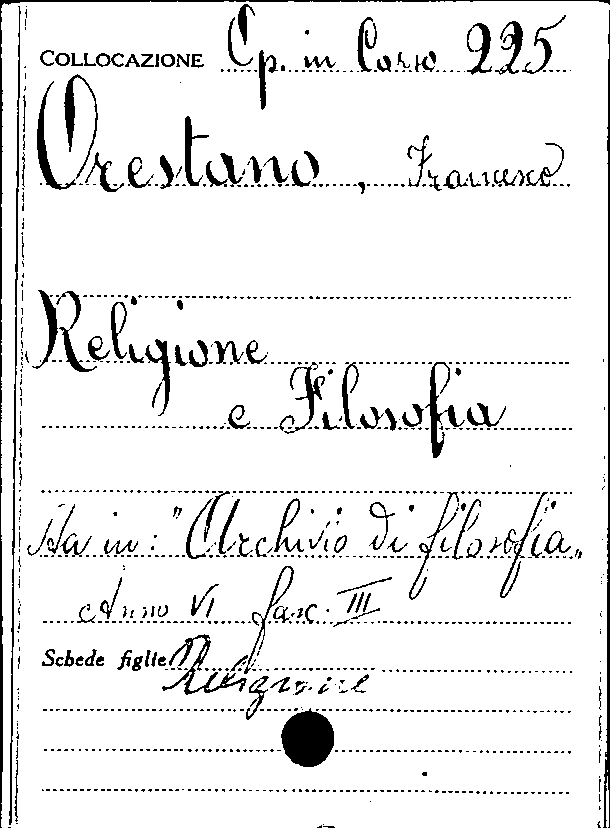 COLLOCAZIONE Cp. in Corso 225
Orestano, Francesco
Religione
e Filosofia
Sta in: "Archivio di filosofia„
Anno VI fasc. III
Schede figlie Religione